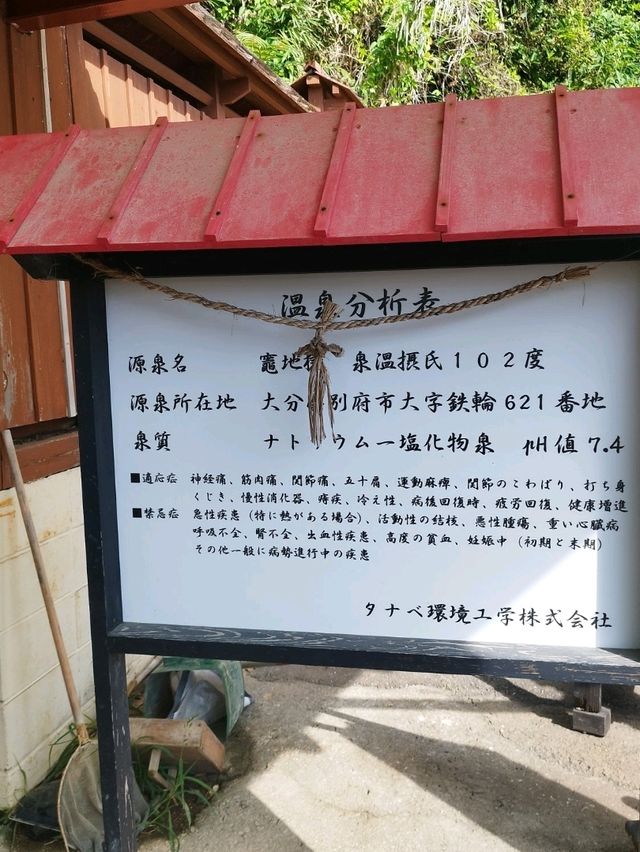 温泉分析表
源泉名 竈地 泉温摂氏102度
源泉所在地 大分 別府市大字鉄輪621番地
泉質 ナト ウム一塩化物泉 pH値7.4
■適応症 神経痛、筋肉痛、関節痛、五十肩、運動麻痺、関節のこわばり、打ち身
くじき、慢性消化器、痔疾、冷え性、病後回復時、疲労回復、健康増進
■禁忌症 急性疾患（特に熱がある場合）、活動性の結核、悪性腫痛、重い心臓病
呼吸不全、腎不全、出血性疾患、高度の貧血、妊娠中（初期と末期）
その他一般に病勢進行中の疾患
タナベ環境工学株式会社